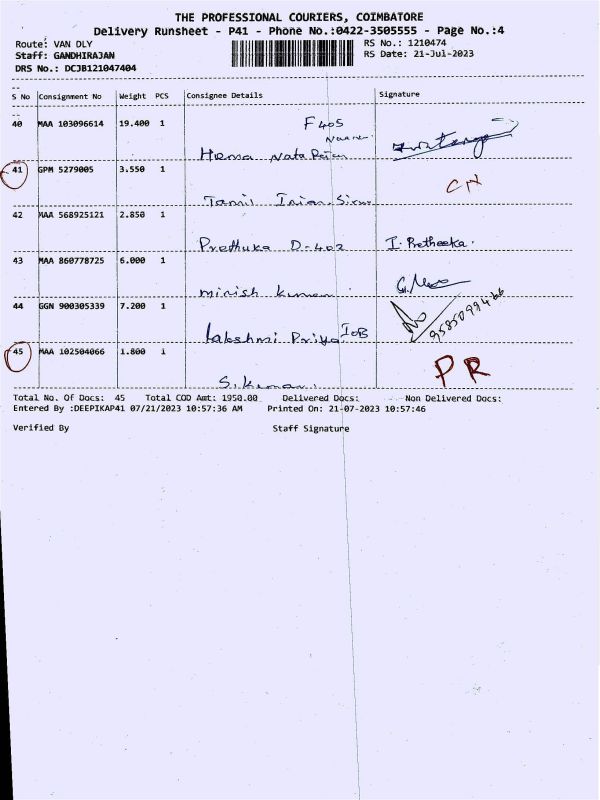 THE PROFESSIONAL COURIERS, COIMBATORE
Delivery Runsheet - P41 - Phone No.:0422-3505555 - Page No.:4
Route: VAN DLY RS No.: 1210474
Staff: GANDHIRAJAN RS Date: 21-Jul-2023
DRS No.: DCJB121047404
S No Consignment No Weight PCS Consignee Details Signature
40 MAA 103096614 19.400 1 F 405
Hema Nata Rajan
41 GPM 5279005 3.550 1
Tamil
42 MAA 568925121 2.850 1
Prethuka D-402 I. Pretheeka.
43 MAA 860778725 6.000 1
minish kumar
44 GGN 900305339 7.200 1
Lakshmi Priya IOB 9585099466
45 MAA 102504066 1.800 1 PR
S. Kumar.
Total No. Of Docs: 45 Total COD Amt: 1950.00 Delivered Docs: Non Delivered Docs:
Entered By :DEEPIKAP41 07/21/2023 10:57:36 AM Printed On: 21-07-2023 10:57:46
Verified By Staff Signature